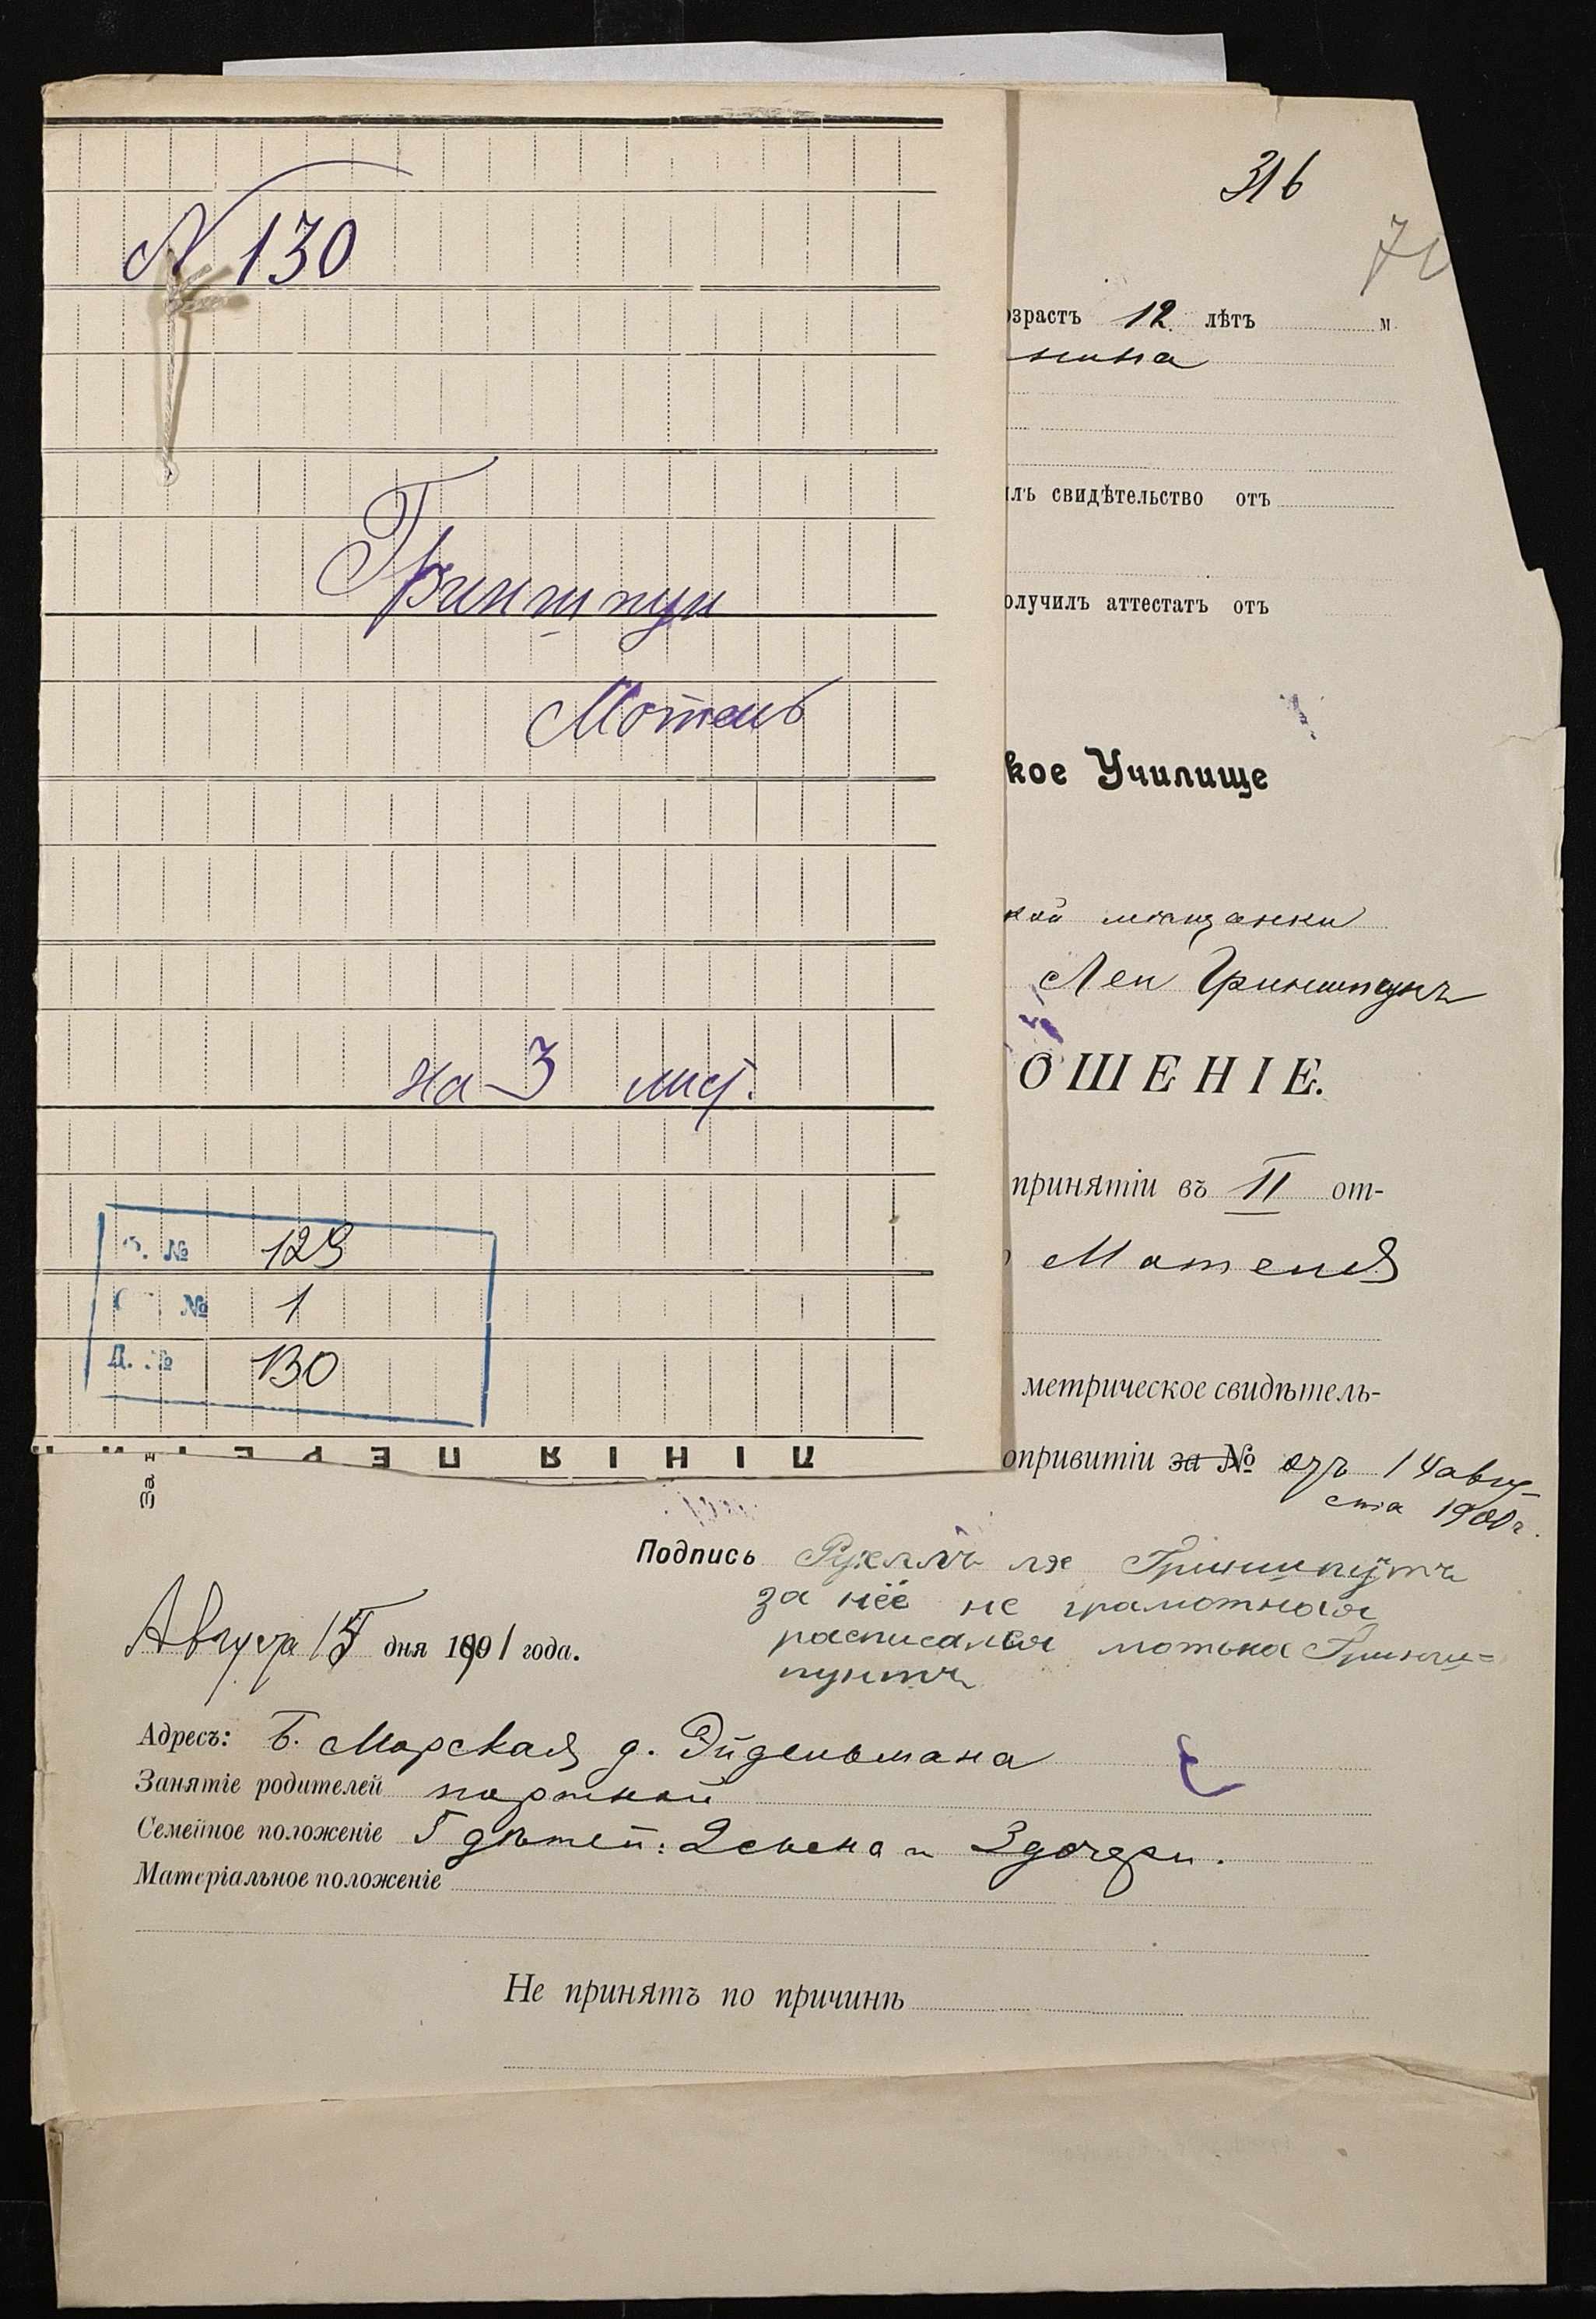 N 130
Гриншпун
Мотель
на 3 лис.
Ф. № 129
О. № 1
Д. № 130
ЛІНІЯ ПЕРЕГИ
За н
316
71
озрастъ 12 лѣтъ м
нина
лъ свидѣтельство отъ
олучилъ аттестатъ отъ
кое Училище
кой мѣщанки
Леи Гриншпунъ
ОШЕНІЕ.
принятіи въ II от-
Мотеля
метрическое свидѣтель-
опривитіи за № отъ 14 авгу-
ста 1900 г.
Подпись Рухля ля Гриншпунтъ
за нёё не грамотная
расписался мотька Гринш=
пунтъ
Августа 15 дня 1901 года.
Адресъ: Б. Морская д. Эйдельмана
Занятіе родителей портной
Семейное положеніе 5 дѣтей: 2 сына и 3 дочери.
Матеріальное положеніе
Не принятъ по причинѣ